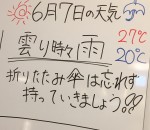 6月7日の天気
曇り時々雨 27℃
20℃
折りたたみ傘は忘れず
持っていきましょう!!